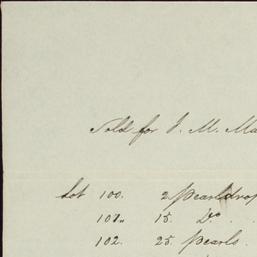 Sold for J. M. Ma
Lot 100. 2 pearldrop
101. 15. Do. .
102. 25. pearls.